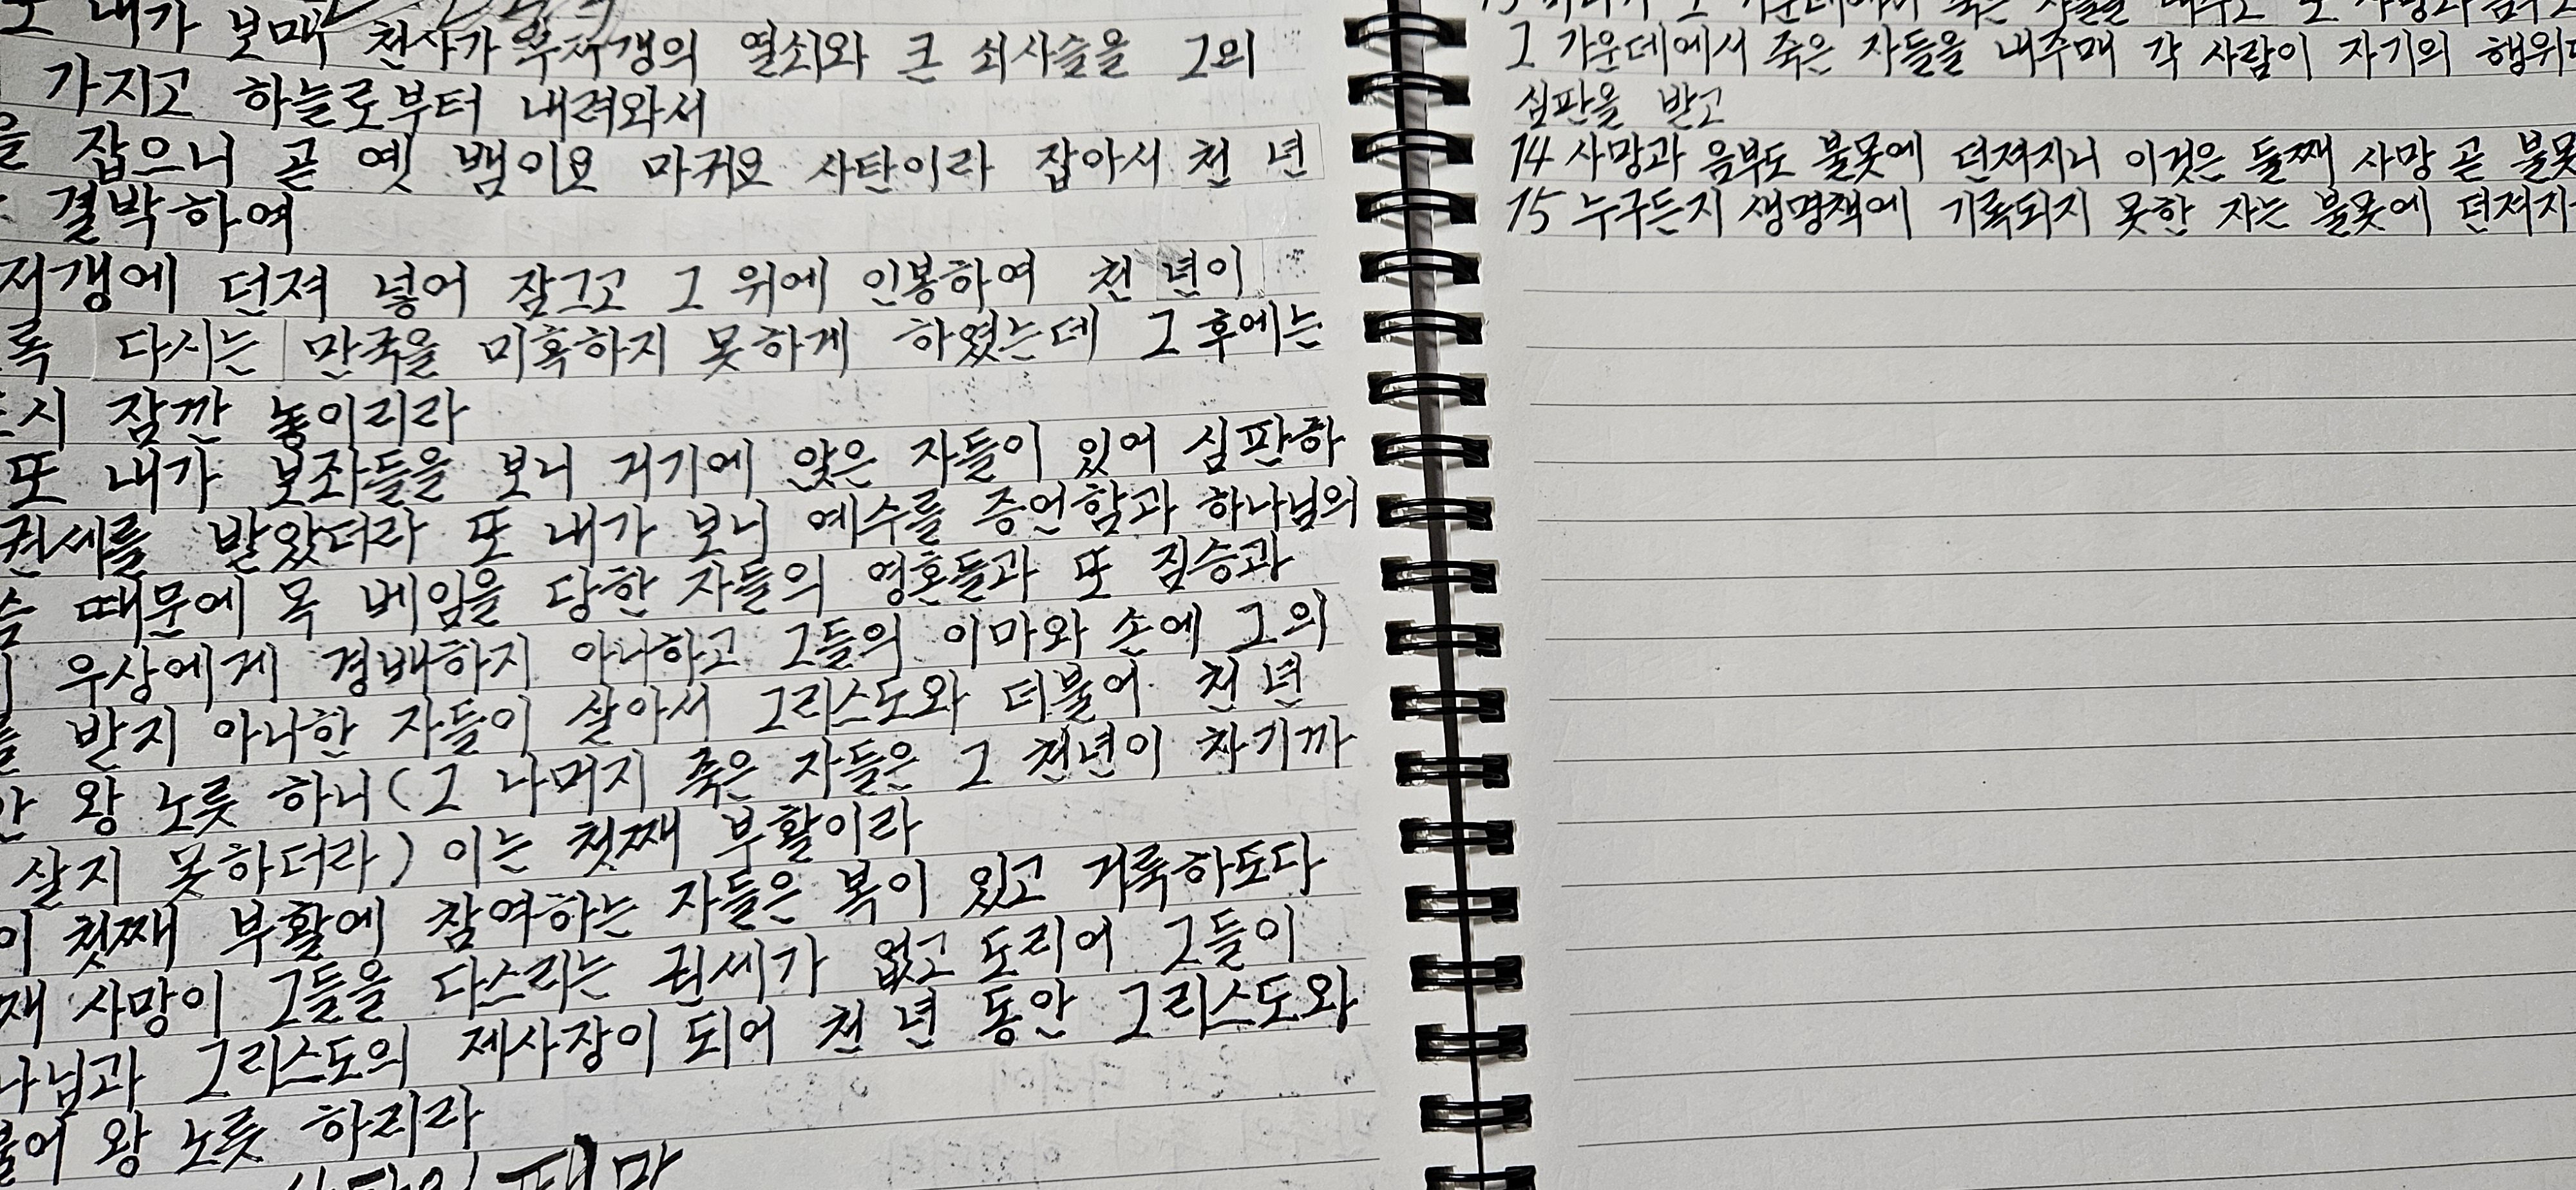 또 내가 보매 천사가 무저갱의 열쇠와 큰 쇠사슬을 그의
가지고 하늘로부터 내려와서
을 잡으니 곧 옛 뱀이요 마귀요 사탄이라 잡아서 천 년
결박하여
저갱에 던져 넣어 잠그고 그 위에 인봉하여 천 년이
록 다시는 만국을 미혹하지 못하게 하였는데 그 후에는
시 잠깐 놓이리라
또 내가 보좌들을 보니 거기에 앉은 자들이 있어 심판하
권세를 받았더라 또 내가 보니 예수를 증언함과 하나님의
씀 때문에 목 베임을 당한 자들의 영혼들과 또 짐승과
우상에게 경배하지 아니하고 그들의 이마와 손에 그의
를 받지 아니한 자들이 살아서 그리스도와 더불어 천 년
안 왕 노릇 하니 (그 나머지 죽은 자들은 그 천년이 차기까
살지 못하더라) 이는 첫째 부활이라
이 첫째 부활에 참여하는 자들은 복이 있고 거룩하도다
째 사망이 그들을 다스리는 권세가 없고 도리어 그들이
나님과 그리스도의 제사장이 되어 천 년 동안 그리스도와
불어 왕 노릇 하리라
사탄의 패망
그 가운데에서 죽은 자들을 내주매 각 사람이 자기의 행위
심판을 받고
14 사망과 음부도 불못에 던져지니 이것은 둘째 사망 곧 불못
15 누구든지 생명책에 기록되지 못한 자는 불못에 던져지